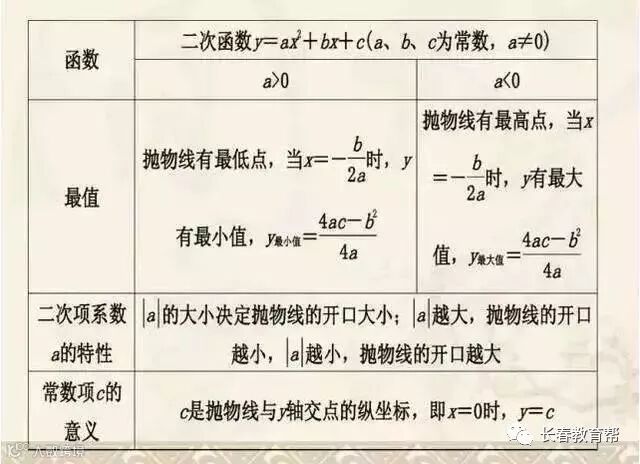 函数
二次函数y=ax²+bx+c(a、b、c为常数，a≠0)
a>0
a<0
最值
抛物线有最低点，当x=-b/2a时，y
有最小值，y最小值=(4ac-b²)/4a
抛物线有最高点，当x
=-b/2a时，y有最大
值，y最大值=(4ac-b²)/4a
二次项系数
a的特性
|a|的大小决定抛物线的开口大小；|a|越大，抛物线的开口
越小，|a|越小，抛物线的开口越大
常数项c的
意义
c是抛物线与y轴交点的纵坐标，即x=0时，y=c
长春教育帮
大数跨境